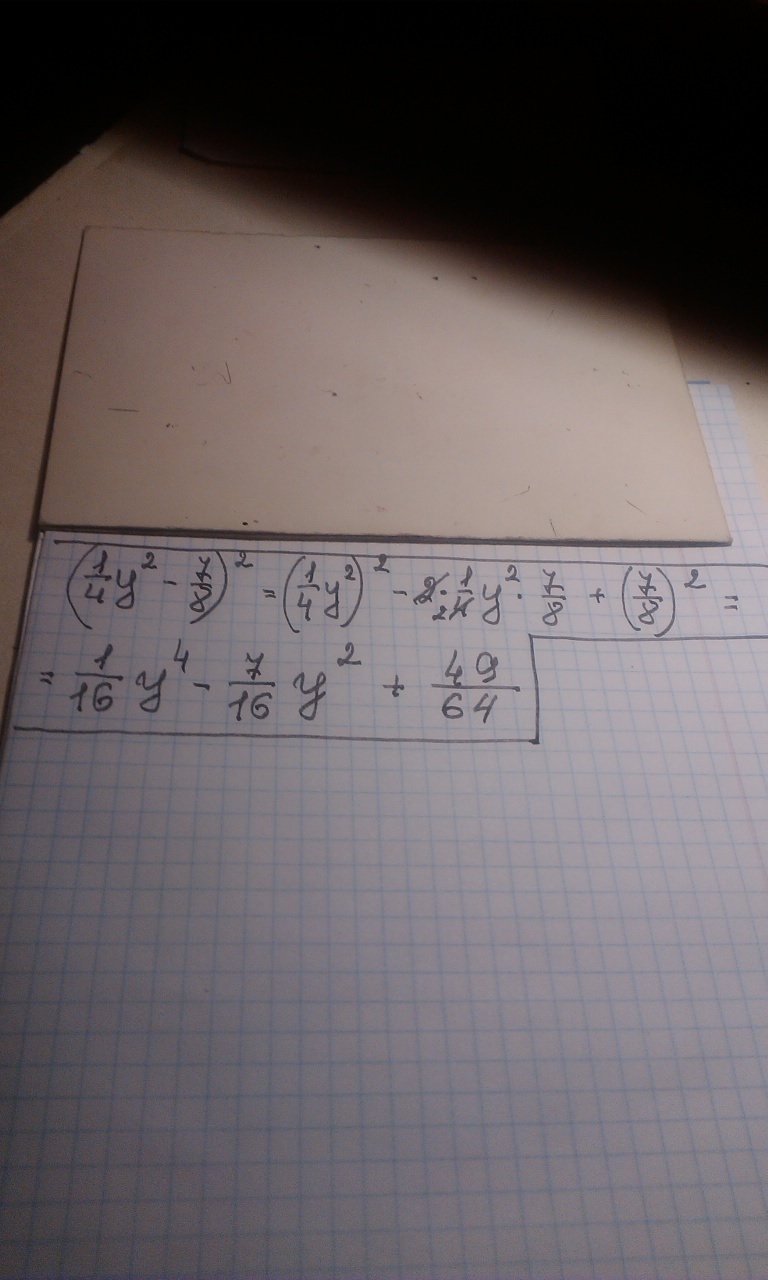 (1/4 y² - 7/8)² = (1/4 y²)² - 2 · 1/4 y² · 7/8 + (7/8)² =
= 1/16 y⁴ - 7/16 y² + 49/64